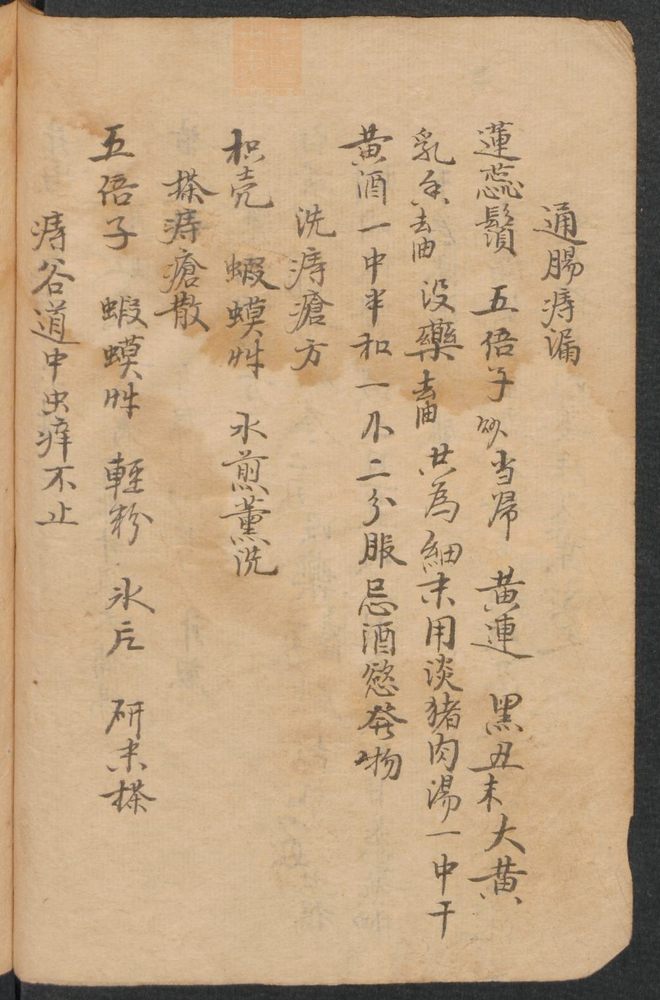 通腸痔漏
蓮蕊鬚 五倍子 炒 当帰 黄連 黑丑末 大黄
乳香去油 没藥去油 共為細末用淡猪肉湯一中干
黄酒一中半和一小二分服忌酒慾發物
洗痔瘡方
枳壳 蝦蟆艸 水煎薰洗
搽痔瘡散
五倍子 蝦蟆艸 輕粉 氷片 研末搽
痔谷道中虫痒不止